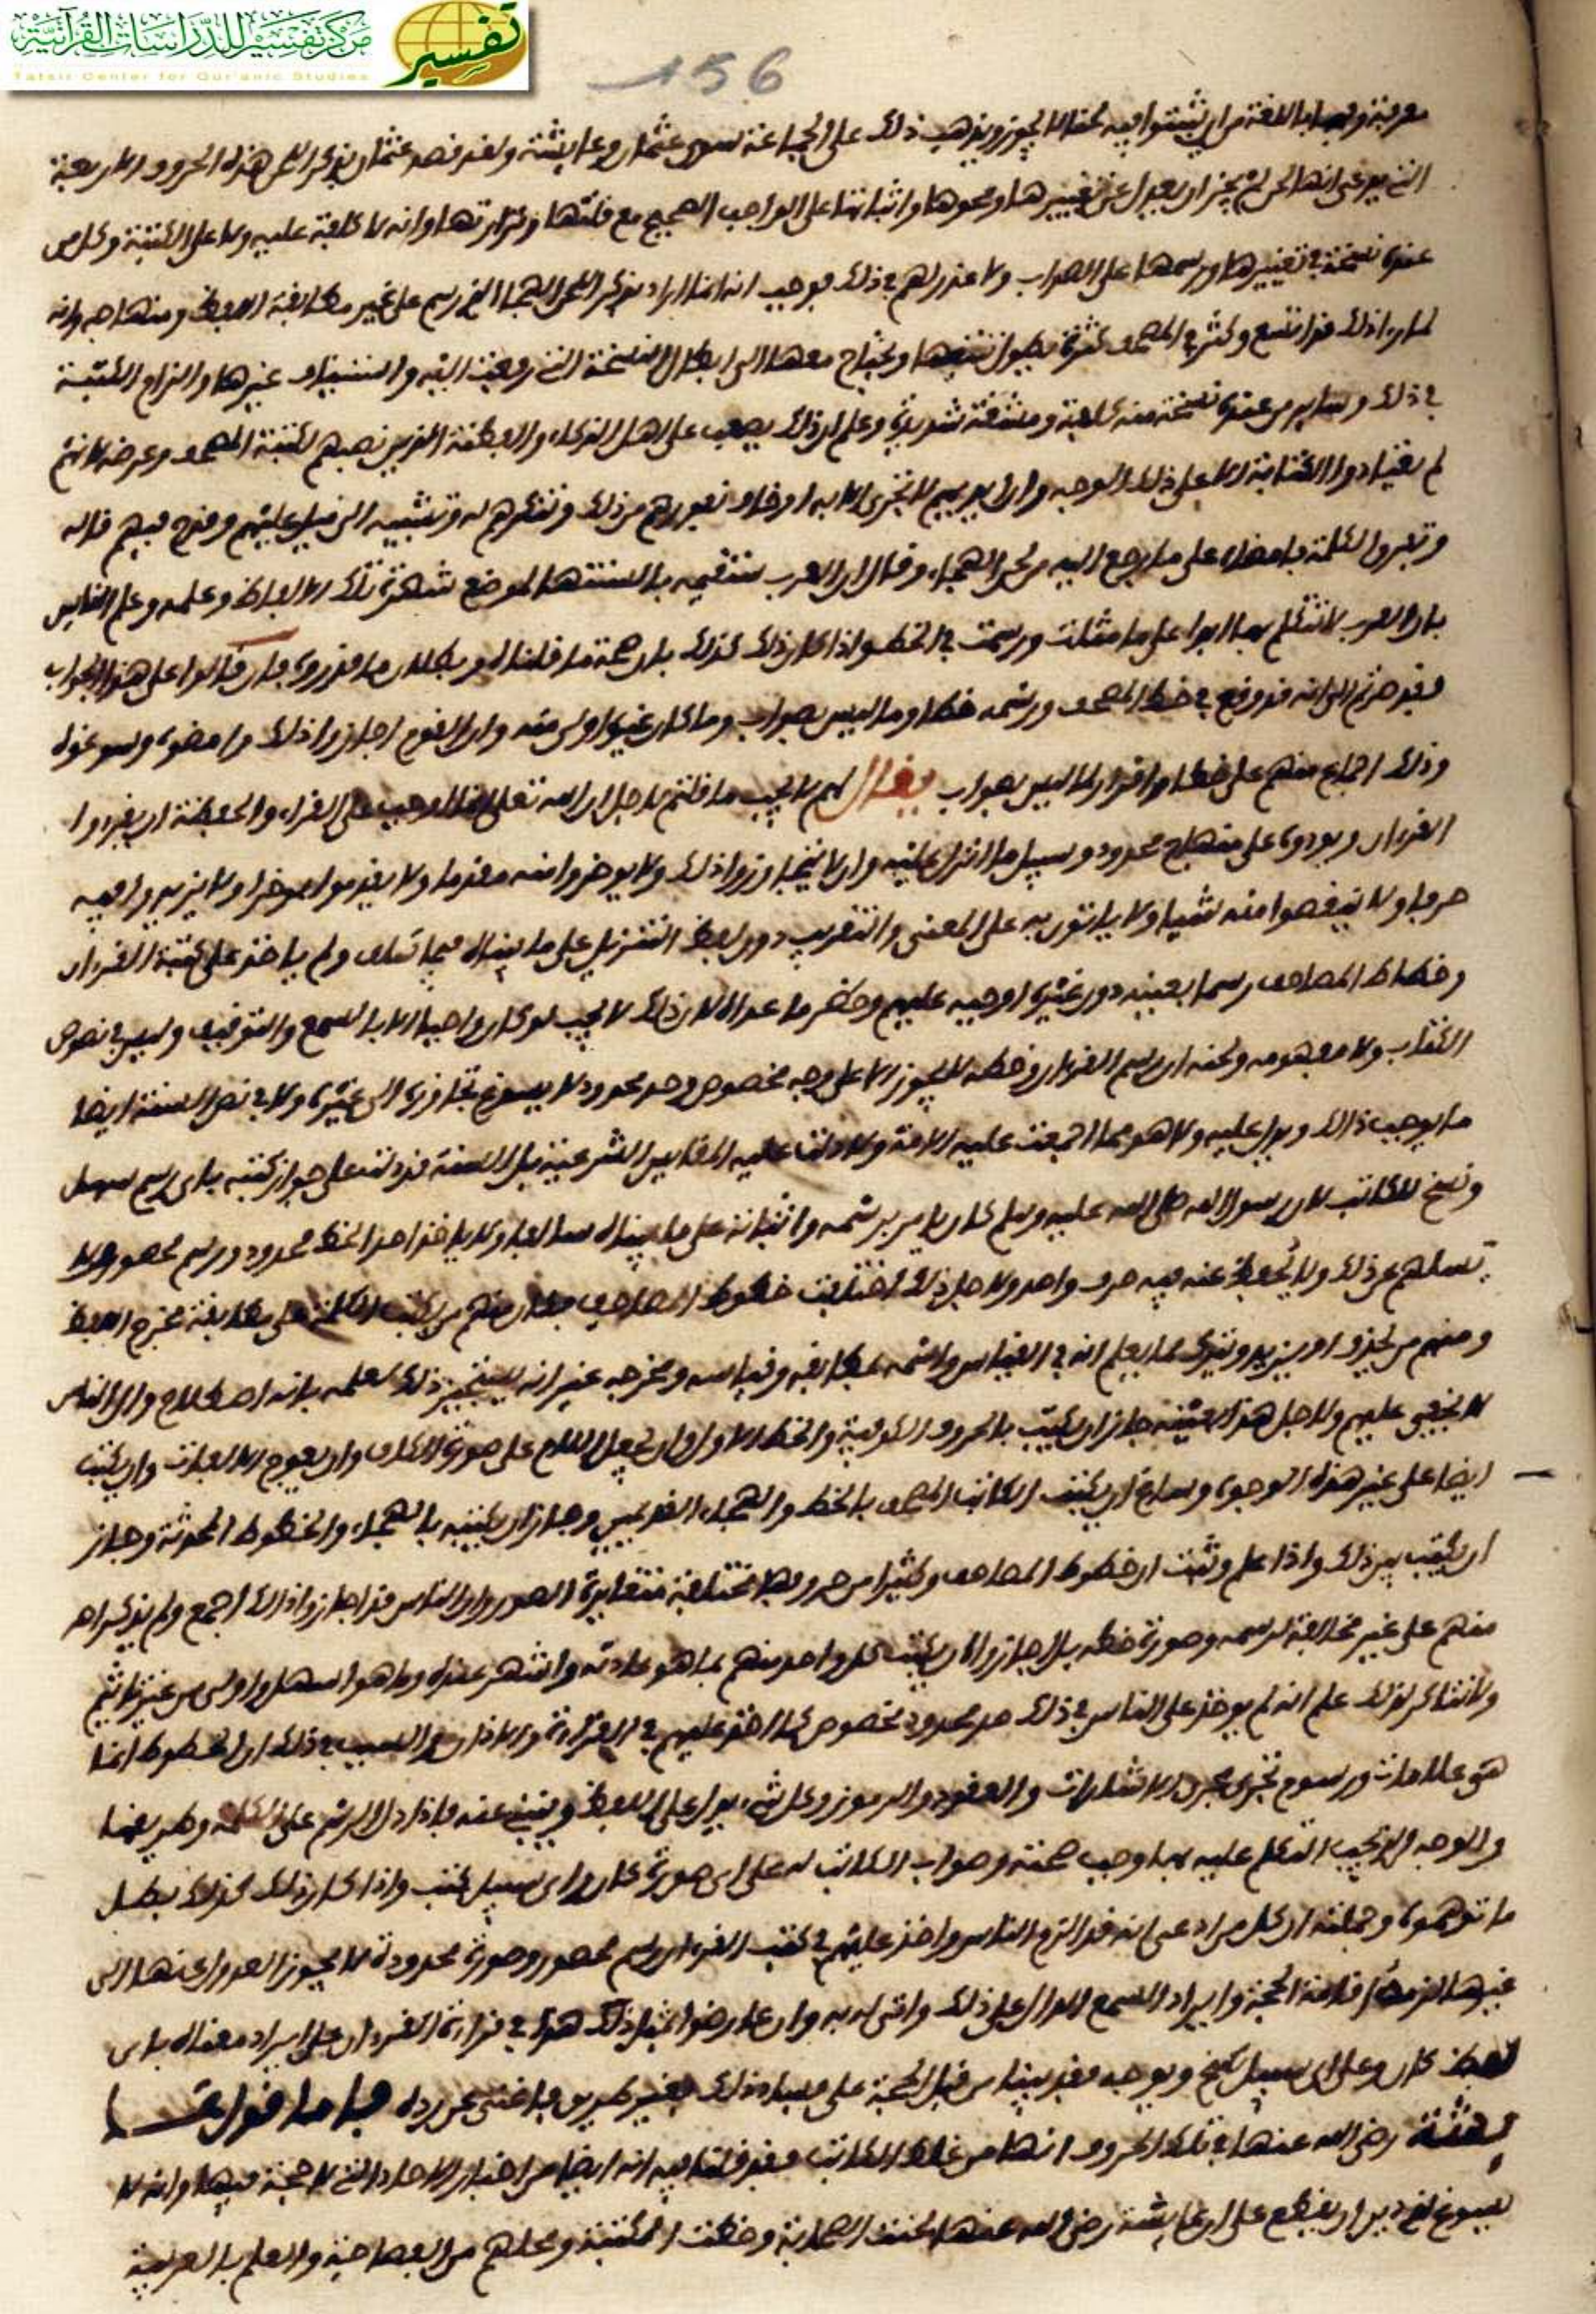 مركز تفسير للدراسات القرآنية
Tafsir Center for Qur'anic Studies
تفسير
156
اللغة من ان يثبتوا فيه لحنا لا يجوز ويذهب ذلك على الجماعة سوى عثمان وعايشة ولقد قصد عثمان بذكر اللحن هذه الحروف الاربعة
التي يدعى انها لحن لم يجز ان يعدل عن تغييرها ومحوها واثباتها على الواجب الصحيح مع قلتها ونزارتها وانه لا كلفة عليه ولا على الكتبة وكل من
عنده نسخة في تغييرها ورسمها على الصواب ولا عذر لهم في ذلك فوجب انه انما اراد بذكر اللحن الهجا الذي رسم على غير مطابقة اللفظ ومنهاجه وانه
لما راى ذلك قد اتسع وكثر في المصحف كثرة يطول تتبعها ويحتاج معها الى ابطال النسخة التي رفعت اليه واستيناف غيرها والزام الكتبة
في ذلك وساير من عنده نسخة منه كلفة ومشقة شديدة وعلم ان ذلك يصعب على اهل الذكاء والفطنة الذين نصبهم لكتبة المصحف وعرضه لانهم
لم يعتادوا الكتابة الا على ذلك الوجه وان ايديهم لا تجري الا به او خاف نفورهم من ذلك وتنكرهم له
على ما رجع اليه من لحن الهجاء وقال ان العرب ستقيمه بالسنتها لموضع شهرة تلك الالفاظ وعلمه وعلم الناس
بان العرب لا تتكلم بها ابدا على ما مثلت ورسمت في الخط واذا كان ذلك كذلك بان صحة ما قلناه وبطلان ما قدروه فان قالوا على هذا الجواب
فقد صرتم الى انه قد وقع في خط المصحف ورسمه خطا وما ليس بصواب وما كان غيره اولى منه وان القوم اجازوا ذلك وامضوه وسوغوه
وذلك اجماع منهم على خطا واقرار لما ليس بصواب يقال لهم لا يجب ما قلتم لاجل ان الله تعالى انما اوجب على القراء والحفظة ان يقرءوا
القرءان ويودوه على منهاج محدود وسبيل ما انزل عليه وان لا يتجاوزوا ذلك ولا يوخروا منه مقدما ولا يقدموا موخرا ولا يزيدوا فيه
حرفا ولا ينقصوا منه شيا ولا ياتون به على المعنى والتقريب دون لفظ التنزيل على ما بيناه فيما سلف ولم ياخذ على كتبة القرءان
وخطاط المصاحف رسما بعينه دون غيره اوجبه عليهم وحظر ما عداه لان ذلك لا يجب لو كان واجبا الا بالسمع والتوقيف وليس في نصوص
الكتاب ولا مفهومه ولحنه ان رسم القرءان وخطه لا يجوز الا على وجه مخصوص وحد محدود لا يسوغ تجاوزه الى غيره ولا في نص السنة ايضا
ما يوجب ذالك ويدل عليه ولا هو مما اجمعت عليه الامة ولا دلت عليه المقاييس الشرعية بل السنة قد دلت على جواز كتبه باى رسم سهل
وسنح للكاتب لان رسول الله صلى الله عليه وسلم كان يامر برسمه واثباته على ما بيناه سالفا ولا ياخذ احدا بخط محدود ورسم محصور ولا
يسلهم عن ذلك ولا يحفظ عنه فيه حرف واحد ولاجل ذلك اختلفت خطوط المصاحف فكان منهم من يكتب الكلمة على مطابقة مخرج اللفظ
ومنهم من يحذف او يزيد ويترك مما يعلم انه في القياس واشبه بمطابقه وقياسه ومخرجه غير انه يستجيز ذلك لعلمه بانه اصطلاح وان الناس
لا يخفى عليهم ولاجل هذا بعينه جاز ان يكتب بالحروف الكوفية والخط الاول وان يجعل اللام على صورة الكاف وان يعوج الالفات وان يكتب
ايضا على غير هذه الوجوه وساغ ان يكتب الكاتب المصحف بالخط والهجاء القديمين وجاز ان يكتبه بالهجاء والخطوط المحدثة وجاز
ان يكتب بين ذلك واذا علم وثبت ان خطوط المصاحف وكثيرا من حروفها مختلفة متغايرة الصور وان الناس قد اجازوا ذالك اجمع ولم ينكر احد
منهم على غير مخالفة لرسمه وصورة خطه بل اجازوا ان يكتب كل واحد منهم بما هو عادته واشتهر عنده وما هو اسهل واولى من غير تاثيم
ولا تناكر لذلك علم انه لم يوخذ على الناس في ذلك حد محدود مخصوص كما اخذ عليهم في القراءة والاذان والسبب في ذلك ان الخطوط انما
هي علامات ورسوم تجري مجرى الاشارات والعقود والرموز وكل شيء يدل على اللفظ وينبي عنه واذا دل الرسم على الكلمة وطريقها
والوجه الذي يجب التكلم عليه بها وجب صحته وصواب الكاتب له على اى صورة كان واى سبيل كتب واذا كان ذلك كذلك بطل
ما توهموه وجملته ان كل من ادعى انه قد الزم الناس واخذ عليهم في كتب القرءان رسم محصور وصورة محدودة لا يجوز العدول عنها الى
غيرها لزمه اقامة الحجة وايراد السمع الدال على ذلك وانى له به وان عارضوا بمثل ذلك هذا في قراءة القرءان على ايراد معناه باى
لفظ كان وعلى اى سبيل سنح ويوجه فقد بينا من قبل الحجة على فساد ذلك بغير طريق فاغنى عن رده فاما قول عا
يشة رضى الله عنها في تلك الحروف انها من غلط الكاتب فقد قلنا فيه انه ايضا من اخبار الاحاد التي لا حجة فيها وانه لا
يسوغ لذي دين ان يقطع على ان عايشة رضى الله عنها لحنت الصحابة وخطت الكتبة ومحلهم من الفصاحة والعلم بالعربية